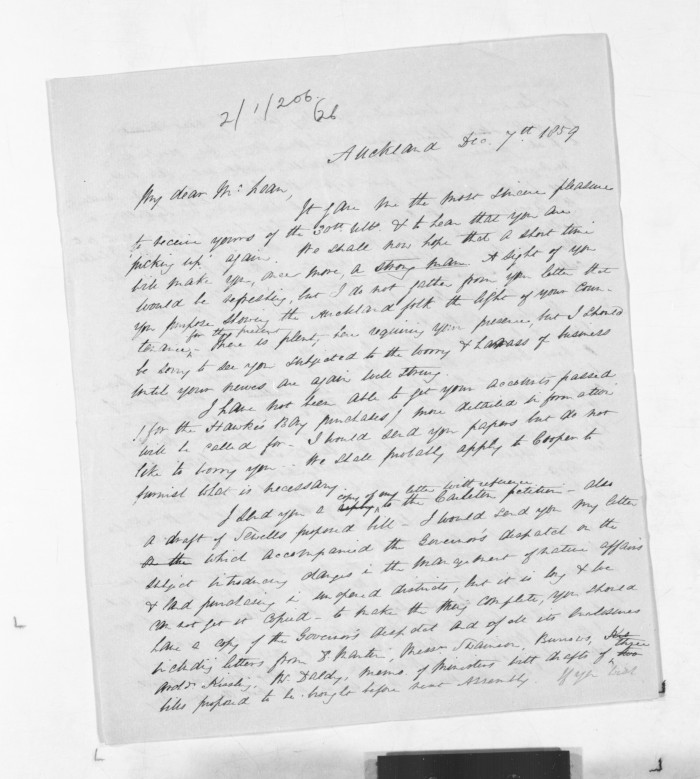 2/1/206.
/26
Auckland Dec 7th 1859
My dear McLean,
It gave me the most sincere pleasure
to receive yours of the 30th ulto & to hear that you are
'picking up' again. We shall now hope that a short time
will make you, once more, a strong man. A sight of you
would be refreshing, but I do not gather from your letter that
you purpose showing the Auckland folk the light of your coun-
tenance, for the present - There is plenty here requiring your presence, but I should
be sorry to see you subjected to the worry & harass of business
until your nerves are again well strung.
I have not been able to get your accounts passed
(for the Hawke's Bay purchases) more detailed information
will be called for - I would send you papers but do not
like to worry you - We shall probably apply to Cooper to
furnish what is necessary.
I send you a copy of my letter with reference to the Carleton petition - also
a draft of Sewell's proposed bill - I would send you my letter
which accompanied the Governor's dispatch on the
subject introducing changes in the management of native affairs
& land purchasing in unopened districts, but it is long & we
can not get it copied - to make the thing complete, you should
have a copy of the Governor's dispatch and of all its enclosures
including letters from Dr Martin, Messrs Swainson, Burrows,
Archd. Kissling, Mr Daldy, memo. of Ministers with drafts of three
bills proposed to be brought before next Assembly. If you